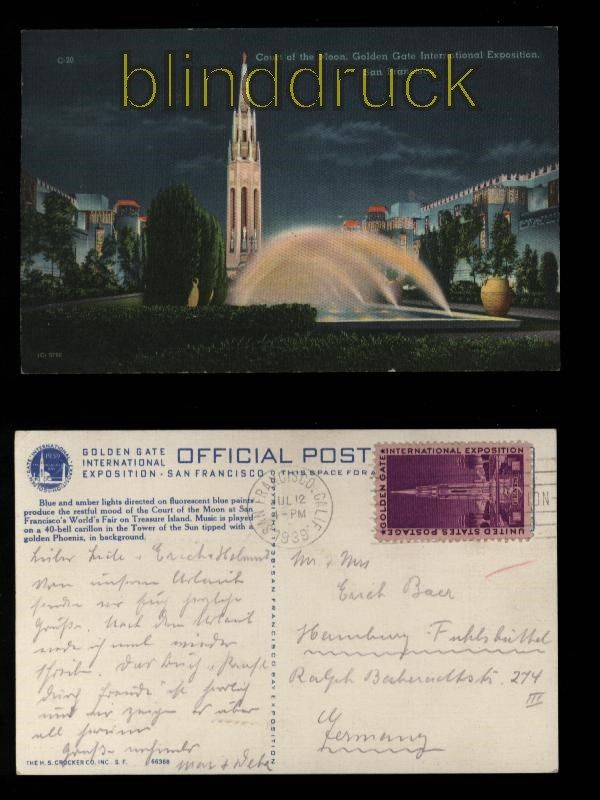 C-20
Court of the Moon, Golden Gate International Exposition,
San Fran
blinddruck
GOLDEN GATE
INTERNATIONAL
EXPOSITION · SAN FRANCISCO
OFFICIAL POST
THIS SPACE FOR A
1939
Blue and amber lights directed on fluorescent blue paints
produce the restful mood of the Court of the Moon at San
Francisco's World's Fair on Treasure Island. Music is played
on a 40-bell carillon in the Tower of the Sun tipped with a
golden Phoenix, in background.
COPYRIGHT 1938 · SAN FRANCISCO BAY EXPOSITION
SAN FRANCISCO, CALIF.
JUL 12
-PM
1939
GOLDEN GATE INTERNATIONAL EXPOSITION
UNITED STATES POSTAGE
ON
Erich + Helmut
Von unserem Urlaub
senden wir Euch herzliche
Grüße. Nach dem Urlaub
ich mal wieder
Das Buch "Kraft
durch Freude" ist herrlich
und wir zeigen es über
all herum
Grüße
Max +
Mr + Mrs
Erich Baer
Hamburg-Fuhlsbüttel
Ralph 274
III
Germany
THE H. S. CROCKER CO. INC. S. F.
66368